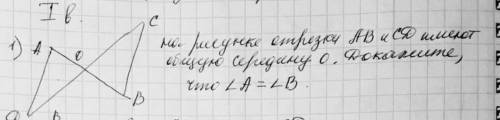 I в.
1)
C
A
O
B
на рисунке отрезки AB и CD имеют
общую середину O. Докажите,
что ∠A = ∠B.
D